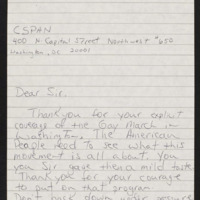 CSPAN
400 N Capitol Street Northwest #650
Washington, DC 20001
Dear Sir.
Thank you for your explicit
coverage of the Gay March in
Washington. The American
People need to see what this
movement is all about. You
you Sir gave them a mild taste
Thank you for your courage
to put on that program
Don't back down under pressure